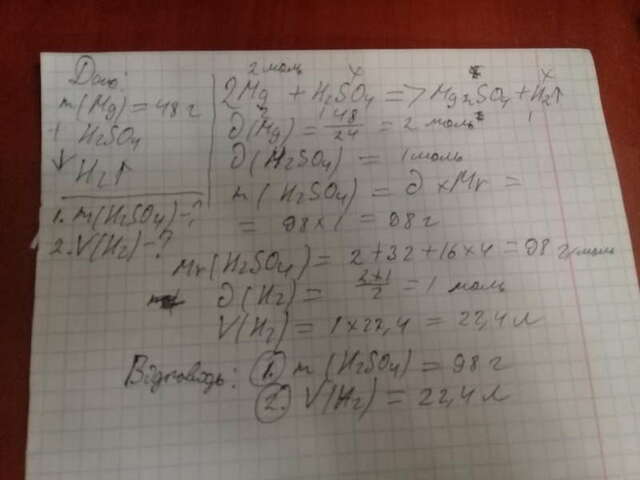 Дано:
m(Mg) = 48 г
+ H₂SO₄
V H₂↑
1. m(H₂SO₄) - ?
2. V(H₂) - ?
2 моль x x
2Mg + H₂SO₄ => Mg₂SO₄ + H₂↑
2 1 1
∂(Mg) = 48/24 = 2 моль
∂(H₂SO₄) = 1 моль
m(H₂SO₄) = ∂ × Mr =
= 98 × 1 = 98 г
Mr(H₂SO₄) = 2 + 32 + 16 × 4 = 98 г/моль
∂(H₂) = = 1 моль
V(H₂) = 1 × 22,4 = 22,4 л
Відповідь: 1. m(H₂SO₄) = 98 г
2. V(H₂) = 22,4 л